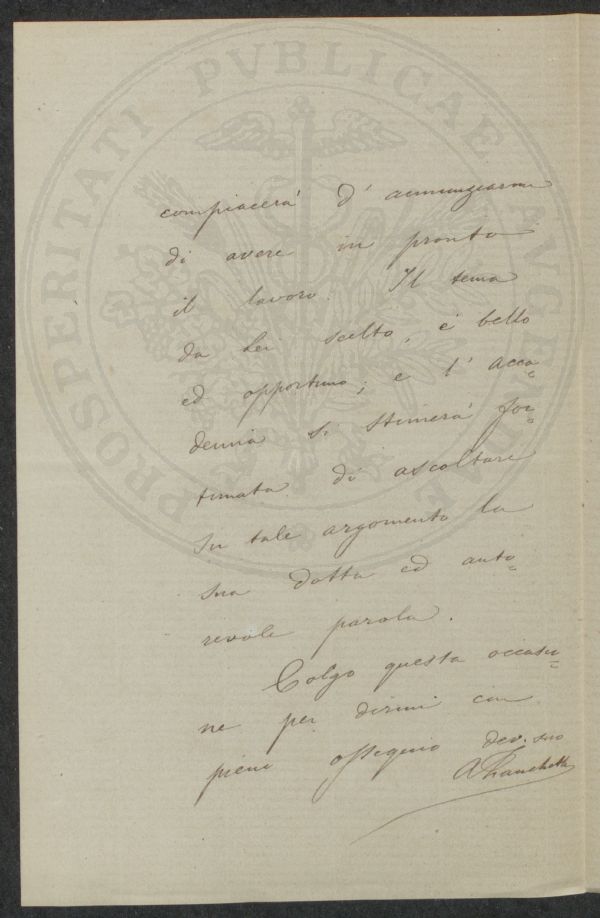 PROSPERITATI PVBLICAE AVGENDAE
compiacerà d'annunziarmi
di avere in pronto
il lavoro. Il tema
da Lei scelto, è bello
ed opportuno; e l'acca=
demia si stimerà for=
tunata di ascoltare
su tale argomento la
sua dotta ed auto=
revole parola.
Colgo questa occasio=
ne per dirmi con
pieno ossequio dev. suo